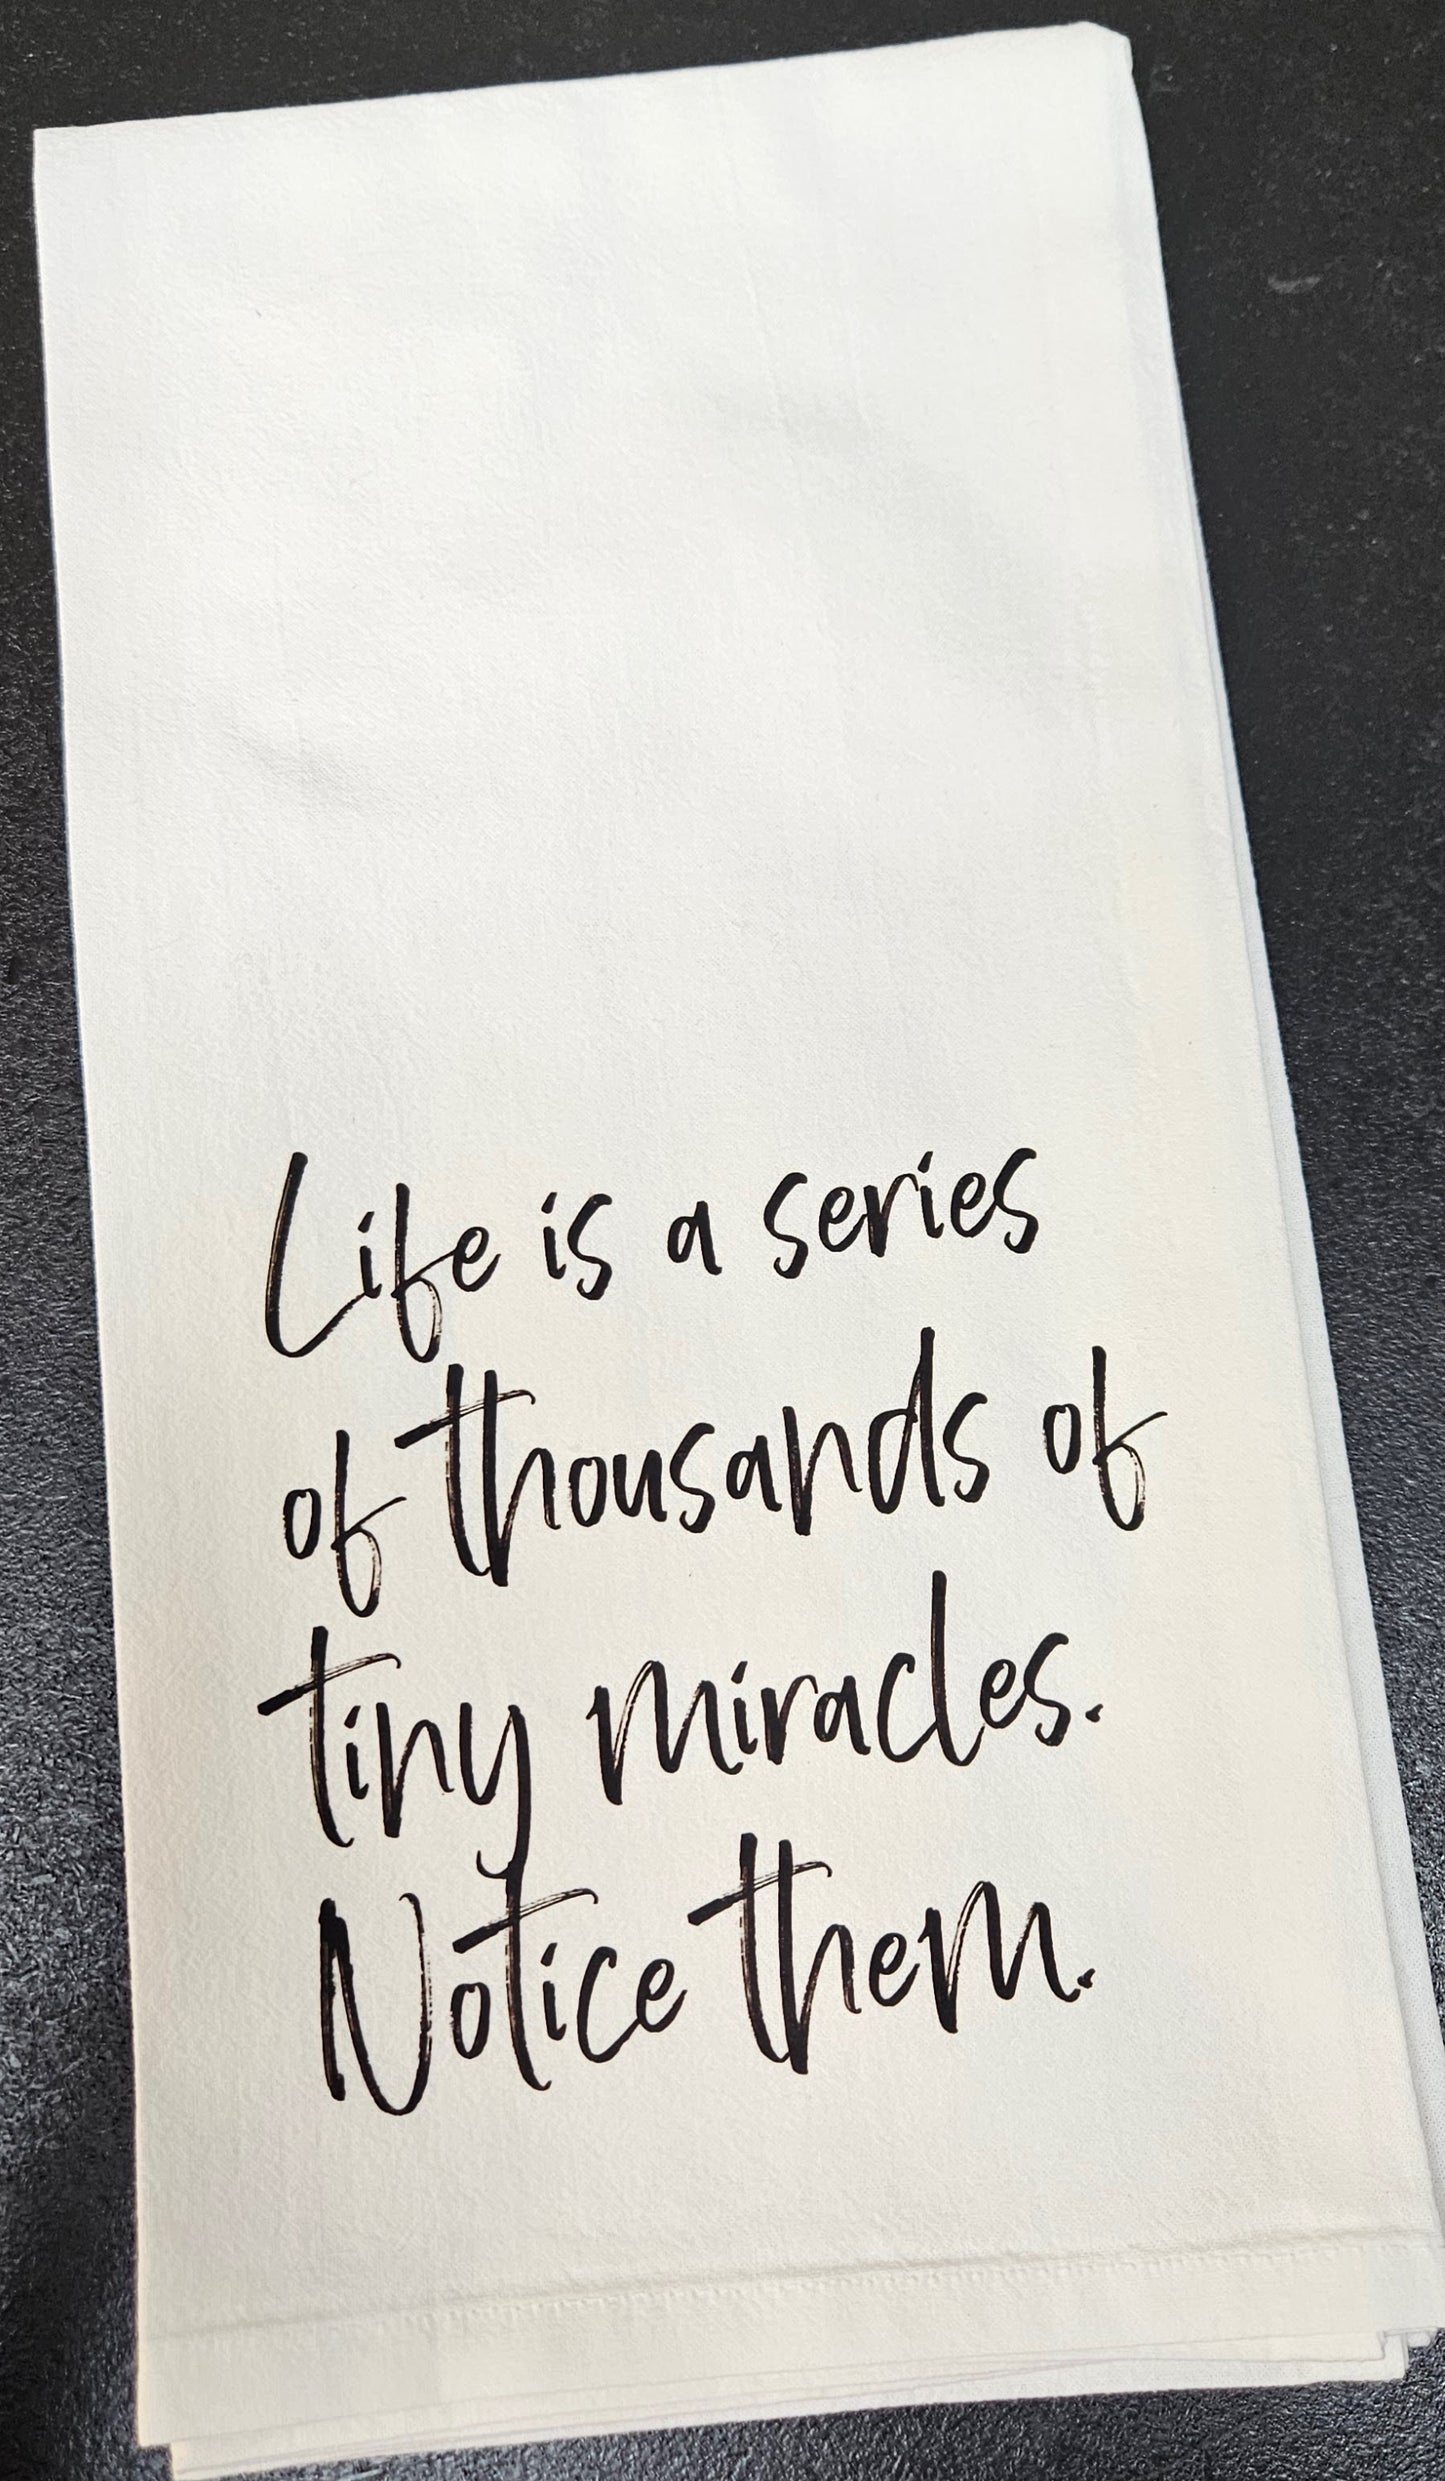 Life is a series
of thousands of
tiny miracles.
Notice them.